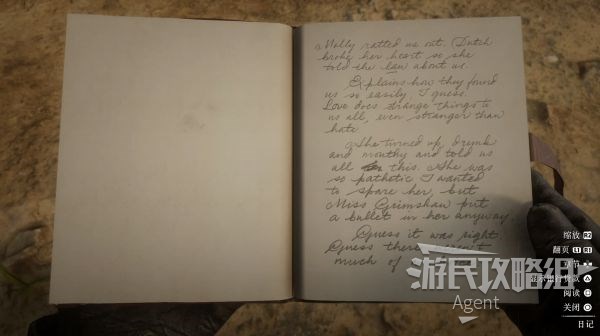 Molly ratted us out. Dutch
broke her heart so she
told the law about us.
Explains how they found
us so easily, I guess.
Love does strange things to
us all, even stranger than
hate.
She turned up, drunk
and mouthy and told us
all this. She was
so pathetic I wanted
to spare her, but
Miss Grimshaw put
a bullet in her anyway.
Guess it was right.
Guess there
much of
缩放 R2
翻页 L1 R1
阅读
关闭
日记
游民攻略组
Agent